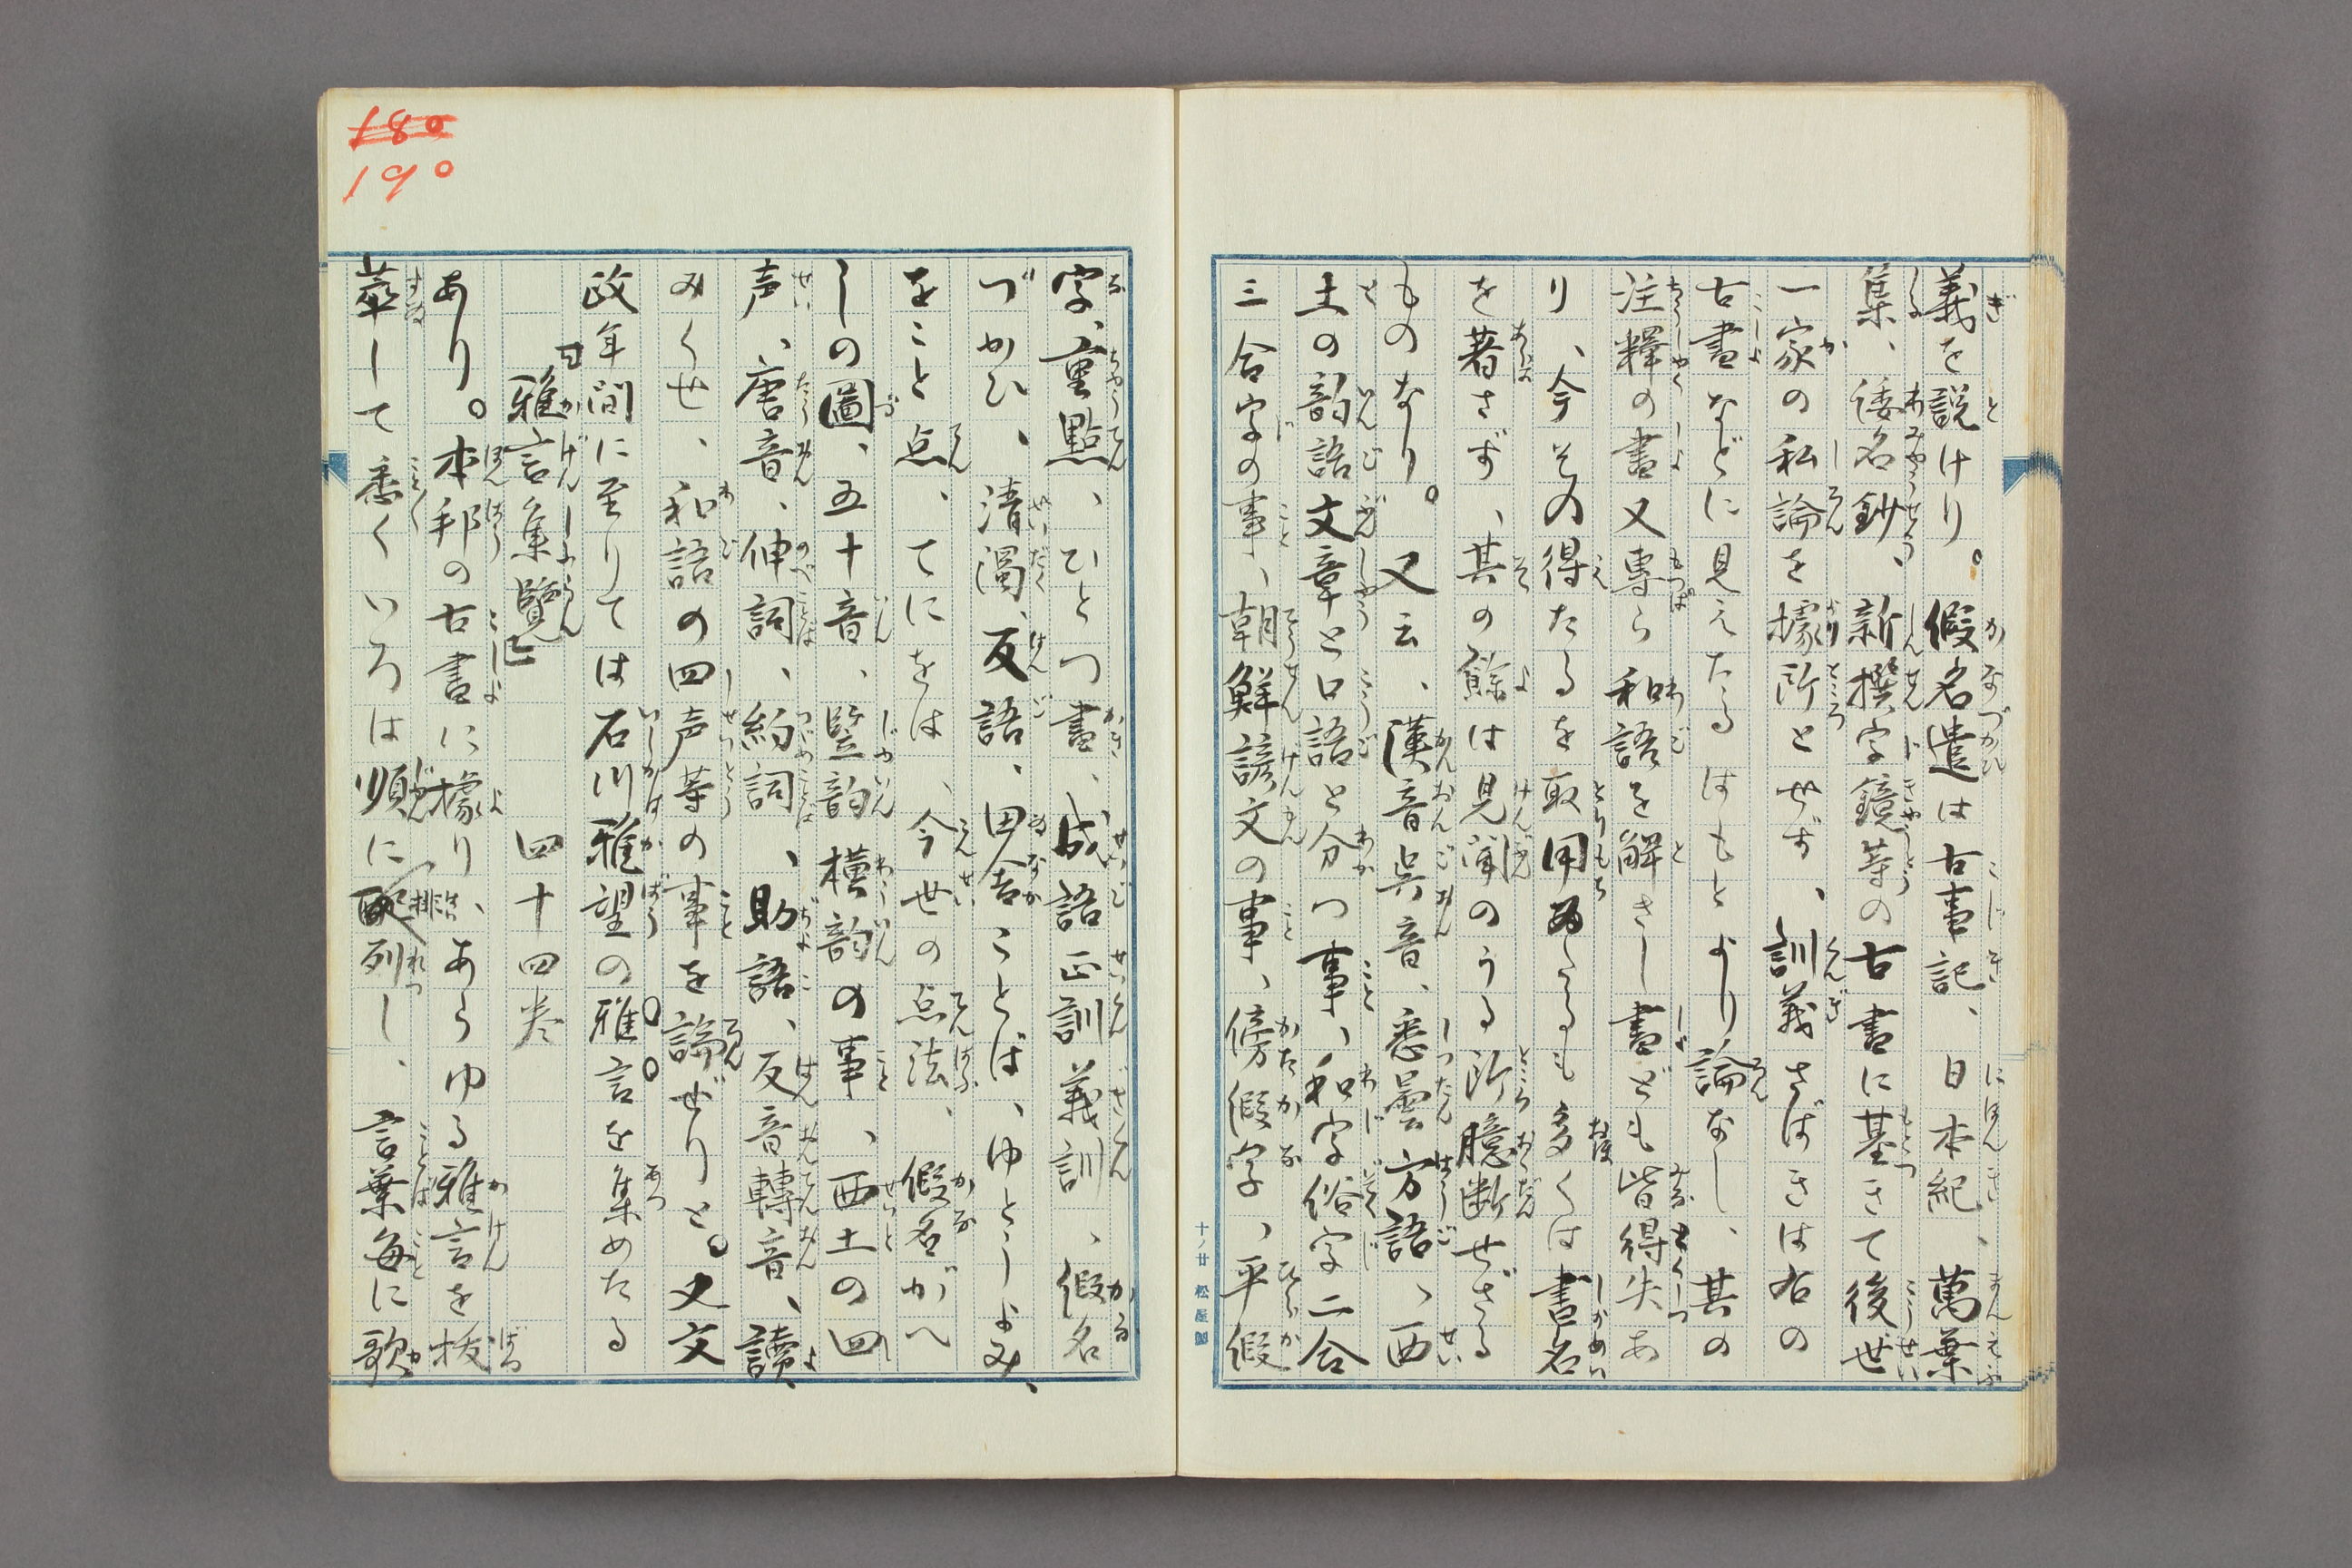 義を説けり。假名遣は古事記、日本紀、萬葉
集、倭名鈔、新撰字鏡等の古書に基きて後世
一家の私論を據所とせず、訓義さばきは右の
古書などに見えたるはもとより論なし、其の
注釋の書又專ら和語を解さし書ども皆得失あ
り、今その得たるを取用ゐたるも多くは書名
を著さず、其の餘は見聞のうる所臆斷せざる
ものなり。又云、漢音呉音、悉曇方語、西
土の韵語文章と口語と分つ事、和字俗字二合
三合字の事、朝鮮諺文の事、傍假字、平假
十ノ廿 松屋製
180
190
字、重點、ひとつ畫、成語正訓義訓、假名
づかひ、清濁、反語、田舎ことば、ゆとうよみ、
をこと点、てにをは、今世の点法、假名がへ
しの圖、五十音、竪韵横韵の事、西土の四
声、唐音、伸詞、約詞、助語、反音轉音、讀
みくせ、和語の四声等の事を論ぜりと。又文
政年間に至りては石川雅望の雅言を集めたる
雅言集覽 四十四巻
あり。本邦の古書に據り、あらゆる雅言を抜
萃して悉くいろは順に排列し、言葉毎に歌